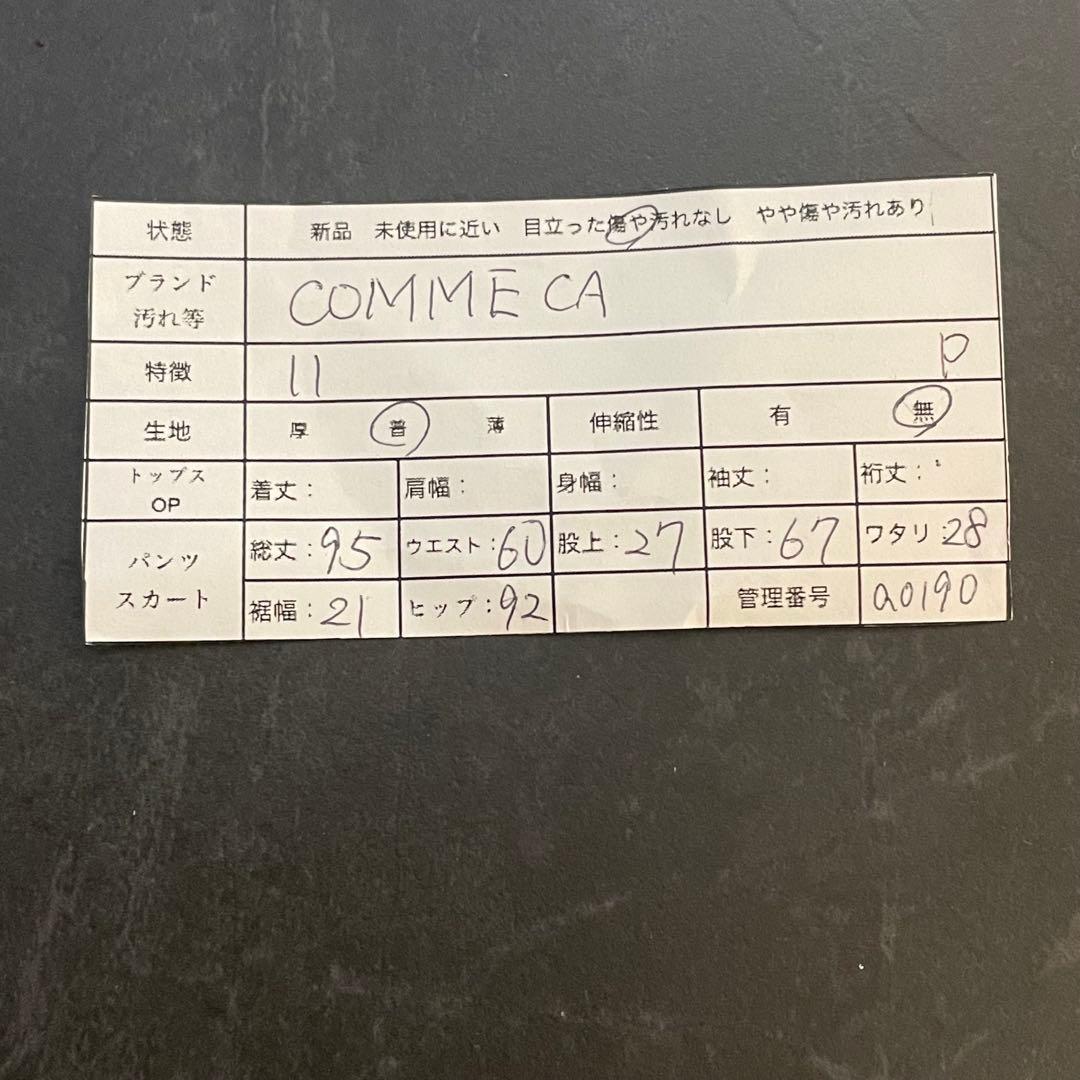 状態 新品 未使用に近い 目立った傷や汚れなし やや傷や汚れあり
ブランド
汚れ等 COMME CA
特徴 11 P
生地 厚 普 薄 伸縮性 有 無
トップス
OP 着丈: 肩幅: 身幅: 袖丈: 裄丈:
パンツ
スカート 総丈:95 ウエスト:60 股上:27 股下:67 ワタリ:28
裾幅:21 ヒップ:92 管理番号 a0190